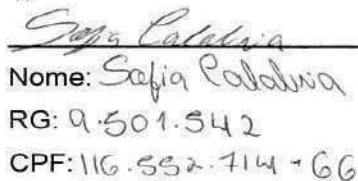 Sofia Calabria
Nome: Sofia Calabria
RG: 9.501.542
CPF: 116.552.714-66